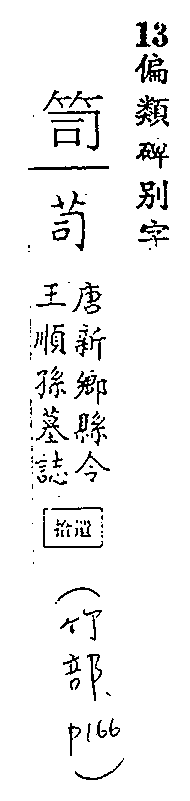 13偏類碑別字
笥
唐新鄉縣令
王順孫墓誌
拾遺
(竹部、p166)